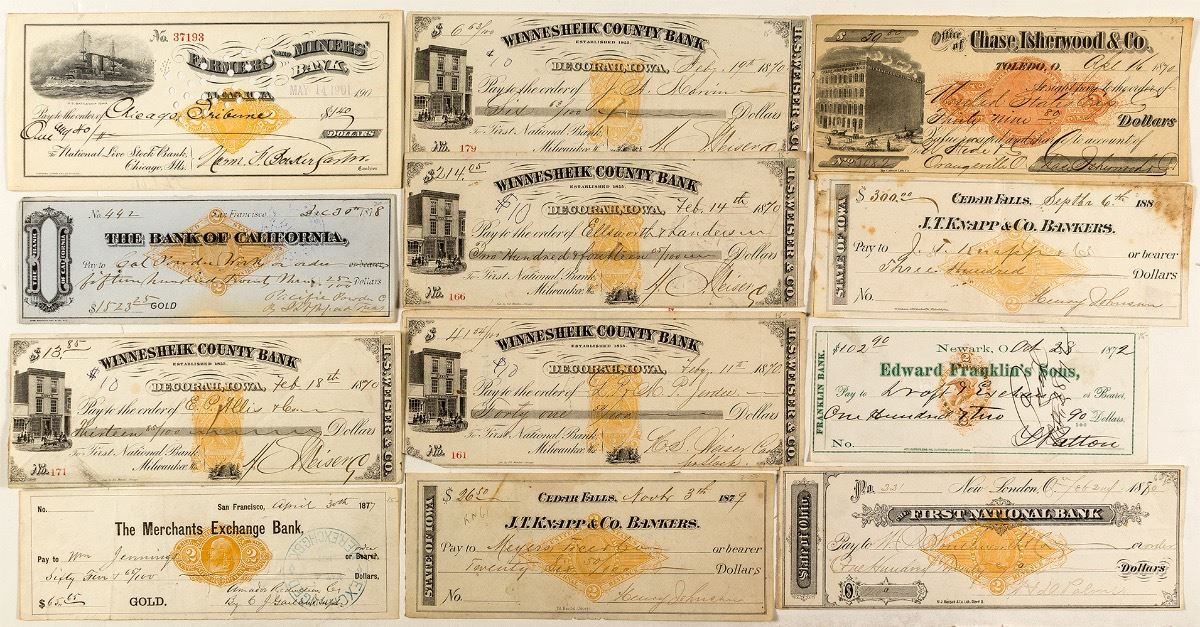 No. 37193
FARMERS' AND MINERS' BANK,
MAY 14 1901 190
Pay to the order of Chicago Tribune $1 40
One & 40/
DOLLARS
To National Live Stock Bank,
Chicago, Ills.
No. 442 San Francisco, Dec 30th 1878
THE BANK OF CALIFORNIA,
Pay to Cal Powder Works or order or bearer
Fifteen hundred twenty three 25/100 Dollars
$1523 25 GOLD
$13.85
WINNESHEIK COUNTY BANK
ESTABLISHED 1855.
DECORAH, IOWA, Feb 18th 1870
Pay to the order of E. P. Allis & Co
Thirteen 85/100 Dollars
To First National Bank,
Milwaukee, Wis.
No. 171
H.S. WEISER & CO.
No. San Francisco, April 30th 1877
The Merchants Exchange Bank,
Pay to Wm Jennings or order or Bearer,
Sixty Five & 85/100 Dollars,
$65.85 GOLD.
$6 52/100
WINNESHEIK COUNTY BANK
ESTABLISHED 1855.
DECORAH, IOWA, Feby 19th 1870
Pay to the order of
Six 52/100 Dollars
To First National Bank,
Milwaukee, Wis.
No. 179
H.S. WEISER & CO.
$214.05
WINNESHEIK COUNTY BANK
ESTABLISHED 1855.
DECORAH, IOWA, Feb. 14th 1870
Pay to the order of Ellsworth & Landers
Two Hundred & fourteen 05/100 Dollars
To First National Bank,
Milwaukee, Wis.
No. 166
H.S. WEISER & CO.
$41 54/100
WINNESHEIK COUNTY BANK
ESTABLISHED 1855.
DECORAH, IOWA, Feby 11th 1870
Pay to the order of
Forty one 54/100 Dollars
To First National Bank,
Milwaukee, Wis.
No. 161
H.S. WEISER & CO.
STATE OF IOWA
$26 50 CEDAR FALLS, Novbr 3th 1879
J.T. KNAPP & CO. BANKERS.
Pay to Meyers Co or bearer
Twenty Six 50/100 Dollars
No. Henry Johnson
$39 80
Office of Chase, Isherwood & Co.,
TOLEDO, O. Oct 16 1870
to the order of
United States Exp
Thirty nine 80 Dollars
to account of
Orangeville O
STATE OF IOWA
$300.00 CEDAR FALLS, Septbr 6th 188
J.T. KNAPP & CO. BANKERS.
Pay to J. T. Knapp & Co or bearer
Three Hundred Dollars
No. Henry Johnson
FRANKLIN BANK.
$102 90 Newark, O. Oct 28 1872
Edward Franklin's Sons,
Pay to Draft & Exchange or Bearer,
One Hundred & Two 90/100 Dollars.
No.
State of Ohio
No. 231 New London, O. Feb 1870
FIRST NATIONAL BANK
Pay to or order
One Hundred Dollars
$